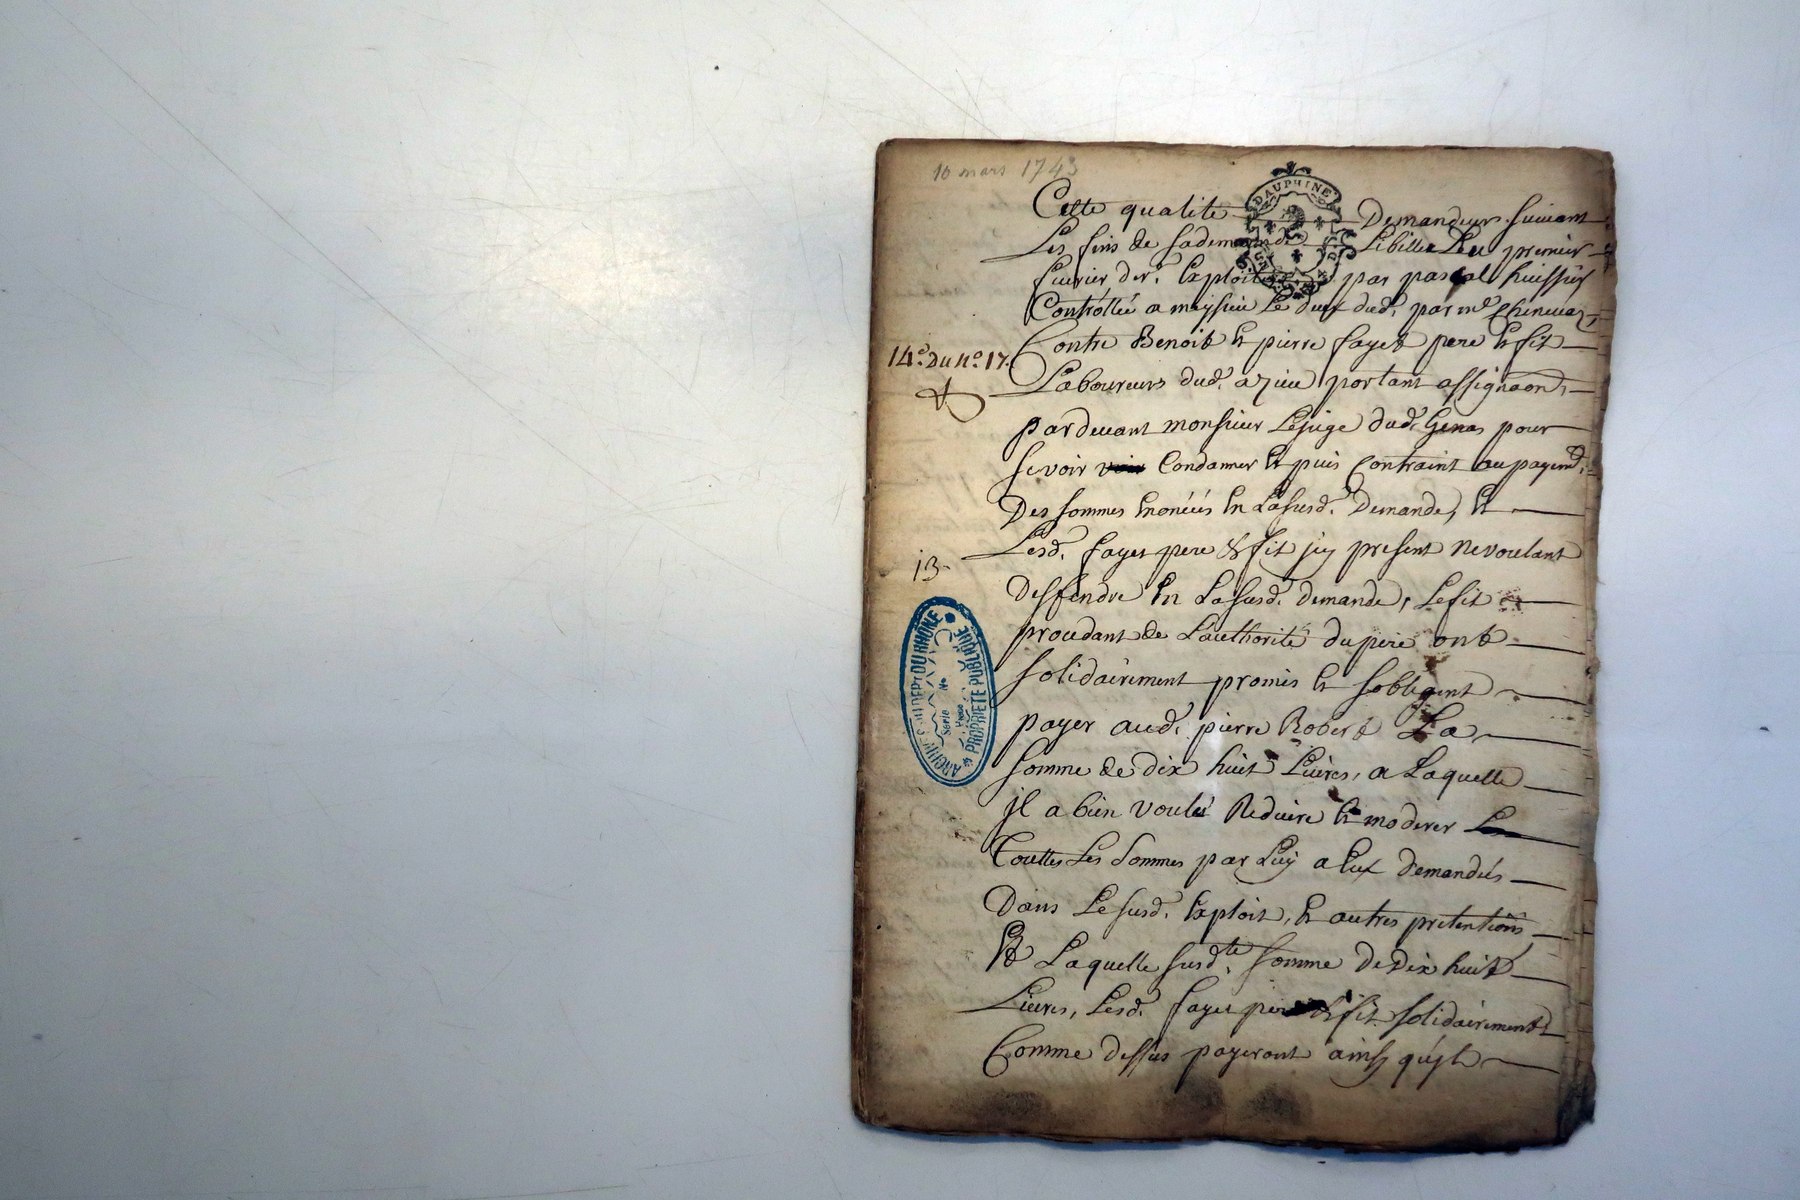 10 mars 1743
DAUPHINE
Cette qualité Demandeurs suivant
Les fins de sademande Libillée Le premier
fevrier, der. Exploité par pascal huissier
Controllée a meysieu Le deux dud. par me
Contre Benoit Et pierre fayet pere Et fit
14e. Du No. 17.
Laboureurs dud. azieu portant assignaon,
pardevant monsieur Lejuge dud. Genas pour
se voir Condamner Et puis Contraint au payemt.
Des sommes Enonéés En Lasusd. Demande, Et
Lesd. fayet pere & fit jcy present Nevoulant
13.
Deffendre En Lasusd. demande, Lefit
procedant de L'authorité du pere ont
solidairement promis Et sobligent
payer aud. pierre Robert La
somme de dix huit Livres, a Laquelle
jl a bien voulu Reduire Et moderer
Touttes Les sommes par Luy a Eux demandés
Dans Le susd. Exploit, Et autres pretentions
Et Laquelle susd.te somme De Dix huit
Livres, Lesd. fayet pere & fit solidairement
Comme dessus payeront ainsy qujls
ARCHIVES DU DEPT DU RHÔNE
Serie No
PROPRIETE PUBLIQUE